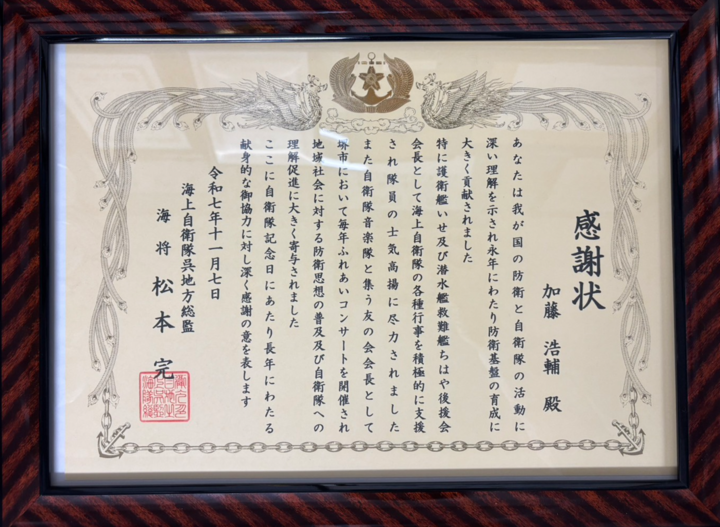 感謝状
加藤 浩輔 殿
あなたは我が国の防衛と自衛隊の活動に
深い理解を示され永年にわたり防衛基盤の育成に
大きく貢献されました
特に護衛艦いせ及び潜水艦救難艦ちはや後援会
会長として海上自衛隊の各種行事を積極的に支援
され隊員の士気高揚に尽力されました
また自衛隊音楽隊と集う友の会会長として
堺市において毎年ふれあいコンサートを開催され
地域社会に対する防衛思想の普及及び自衛隊への
理解促進に大きく寄与されました
ここに自衛隊記念日にあたり長年にわたる
献身的な御協力に対し深く感謝の意を表します
令和七年十一月七日
海上自衛隊呉地方総監
海将 松本 完